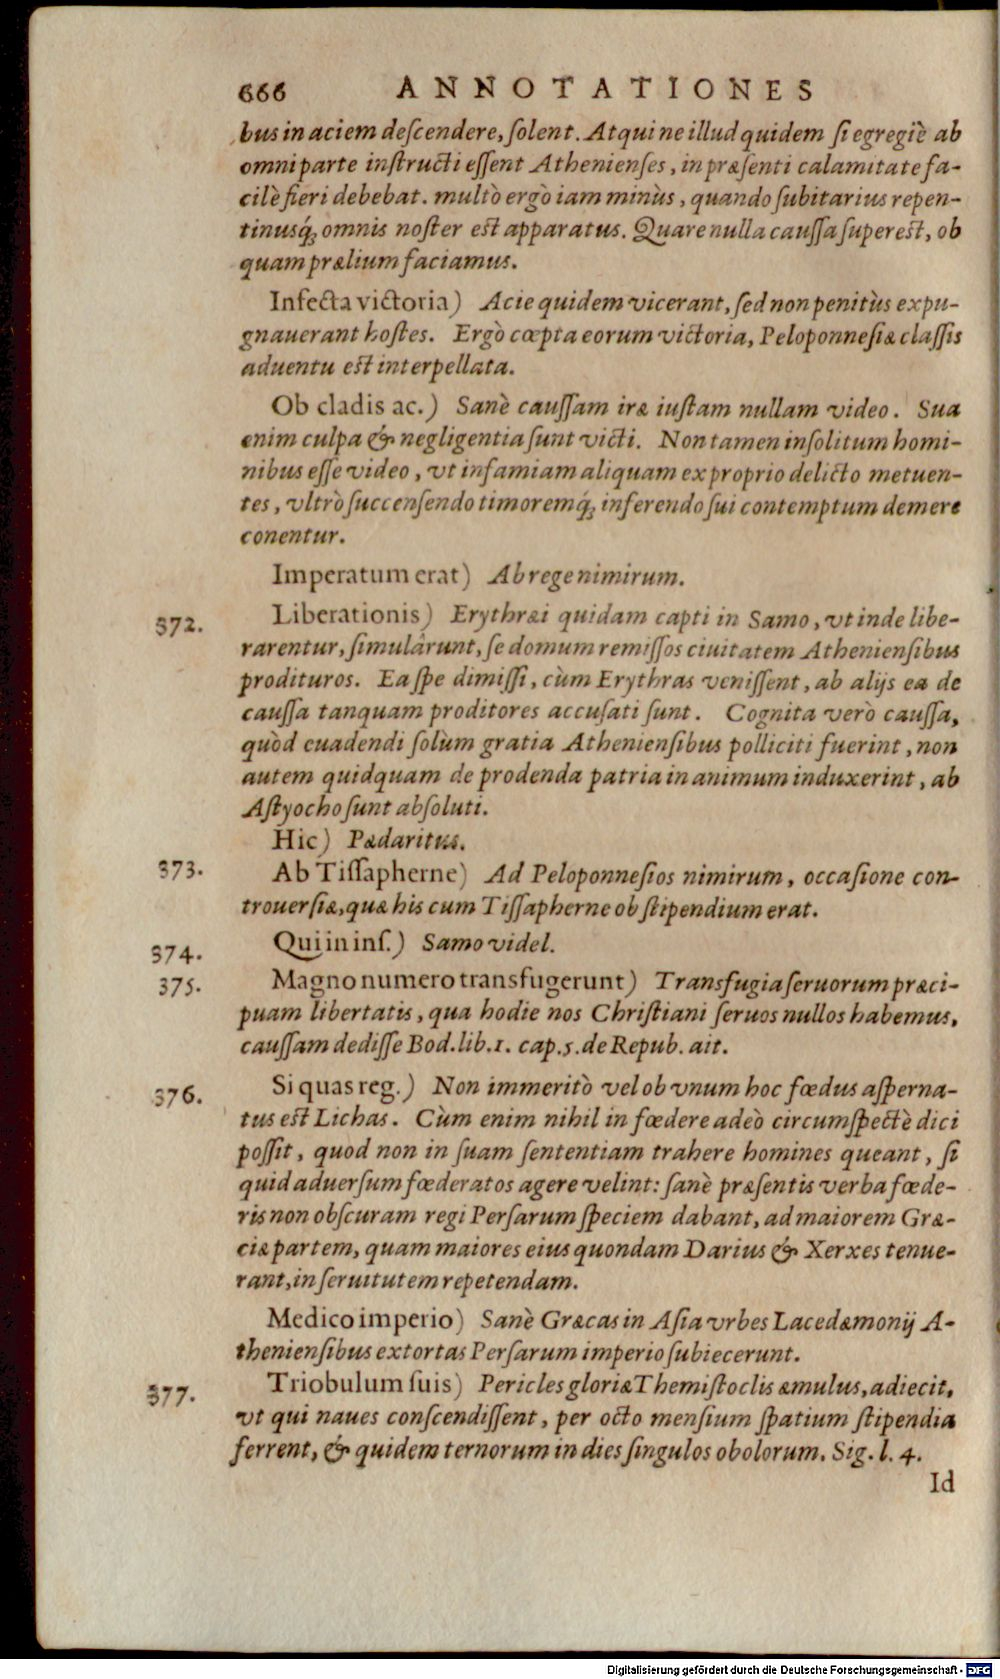 666 ANNOTATIONES
bus in aciem deſcendere, ſolent. Atqui ne illud quidem ſi egregiè ab
omni parte inſtructi eſſent Athenienſes, in præſenti calamitate fa-
cilè fieri debebat. multò ergò iam minùs, quando ſubitarius repen-
tinusq́; omnis noſter eſt apparatus. Quare nulla cauſſa ſupereſt, ob
quam prælium faciamus.
Infecta victoria) Acie quidem vicerant, ſed non penitùs expu-
gnauerant hoſtes. Ergò cœpta eorum victoria, Peloponneſiæ claſſis
aduentu eſt interpellata.
Ob cladis ac.) Sanè cauſſam iræ iuſtam nullam video. Sua
enim culpa & negligentia ſunt victi. Non tamen inſolitum homi-
nibus eſſe video, vt infamiam aliquam ex proprio delicto metuen-
tes, vltrò ſuccenſendo timoremq́; inferendo ſui contemptum demere
conentur.
Imperatum erat) Ab rege nimirum.
372. Liberationis) Erythræi quidam capti in Samo, vt inde libe-
rarentur, ſimulârunt, ſe domum remiſſos ciuitatem Athenienſibus
prodituros. Ea ſpe dimiſſi, cùm Erythras veniſſent, ab alijs ea de
cauſſa tanquam proditores accuſati ſunt. Cognita verò cauſſa,
quòd euadendi ſolùm gratia Athenienſibus polliciti fuerint, non
autem quidquam de prodenda patria in animum induxerint, ab
Aſtyocho ſunt abſoluti.
Hic) Pædaritus.
373. Ab Tiſſapherne) Ad Peloponneſios nimirum, occaſione con-
trouerſiæ, quæ his cum Tiſſapherne ob ſtipendium erat.
374. Qui in inſ.) Samo videl.
375. Magno numero transfugerunt) Transfugia ſeruorum præci-
puam libertatis, qua hodie nos Chriſtiani ſeruos nullos habemus,
cauſſam dediſſe Bod. lib. 1. cap. 5. de Repub. ait.
376. Si quas reg.) Non immeritò vel ob vnum hoc fœdus aſperna-
tus eſt Lichas. Cùm enim nihil in fœdere adeò circumſpectè dici
poſſit, quod non in ſuam ſententiam trahere homines queant, ſi
quid aduerſum fœderatos agere velint: ſanè præſentis verba fœde-
ris non obſcuram regi Perſarum ſpeciem dabant, ad maiorem Græ-
ciæ partem, quam maiores eius quondam Darius & Xerxes tenue-
rant, in ſeruitutem repetendam.
Medico imperio) Sanè Græcas in Aſia vrbes Lacedæmonij A-
thenienſibus extortas Perſarum imperio ſubiecerunt.
377. Triobulum ſuis) Pericles gloriæ Themiſtoclis æmulus, adiecit,
vt qui naues conſcendiſſent, per octo menſium ſpatium ſtipendia
ferrent, & quidem ternorum in dies ſingulos obolorum. Sig. l. 4.
Id
Digitalisierung gefördert durch die Deutsche Forschungsgemeinschaft - DFG